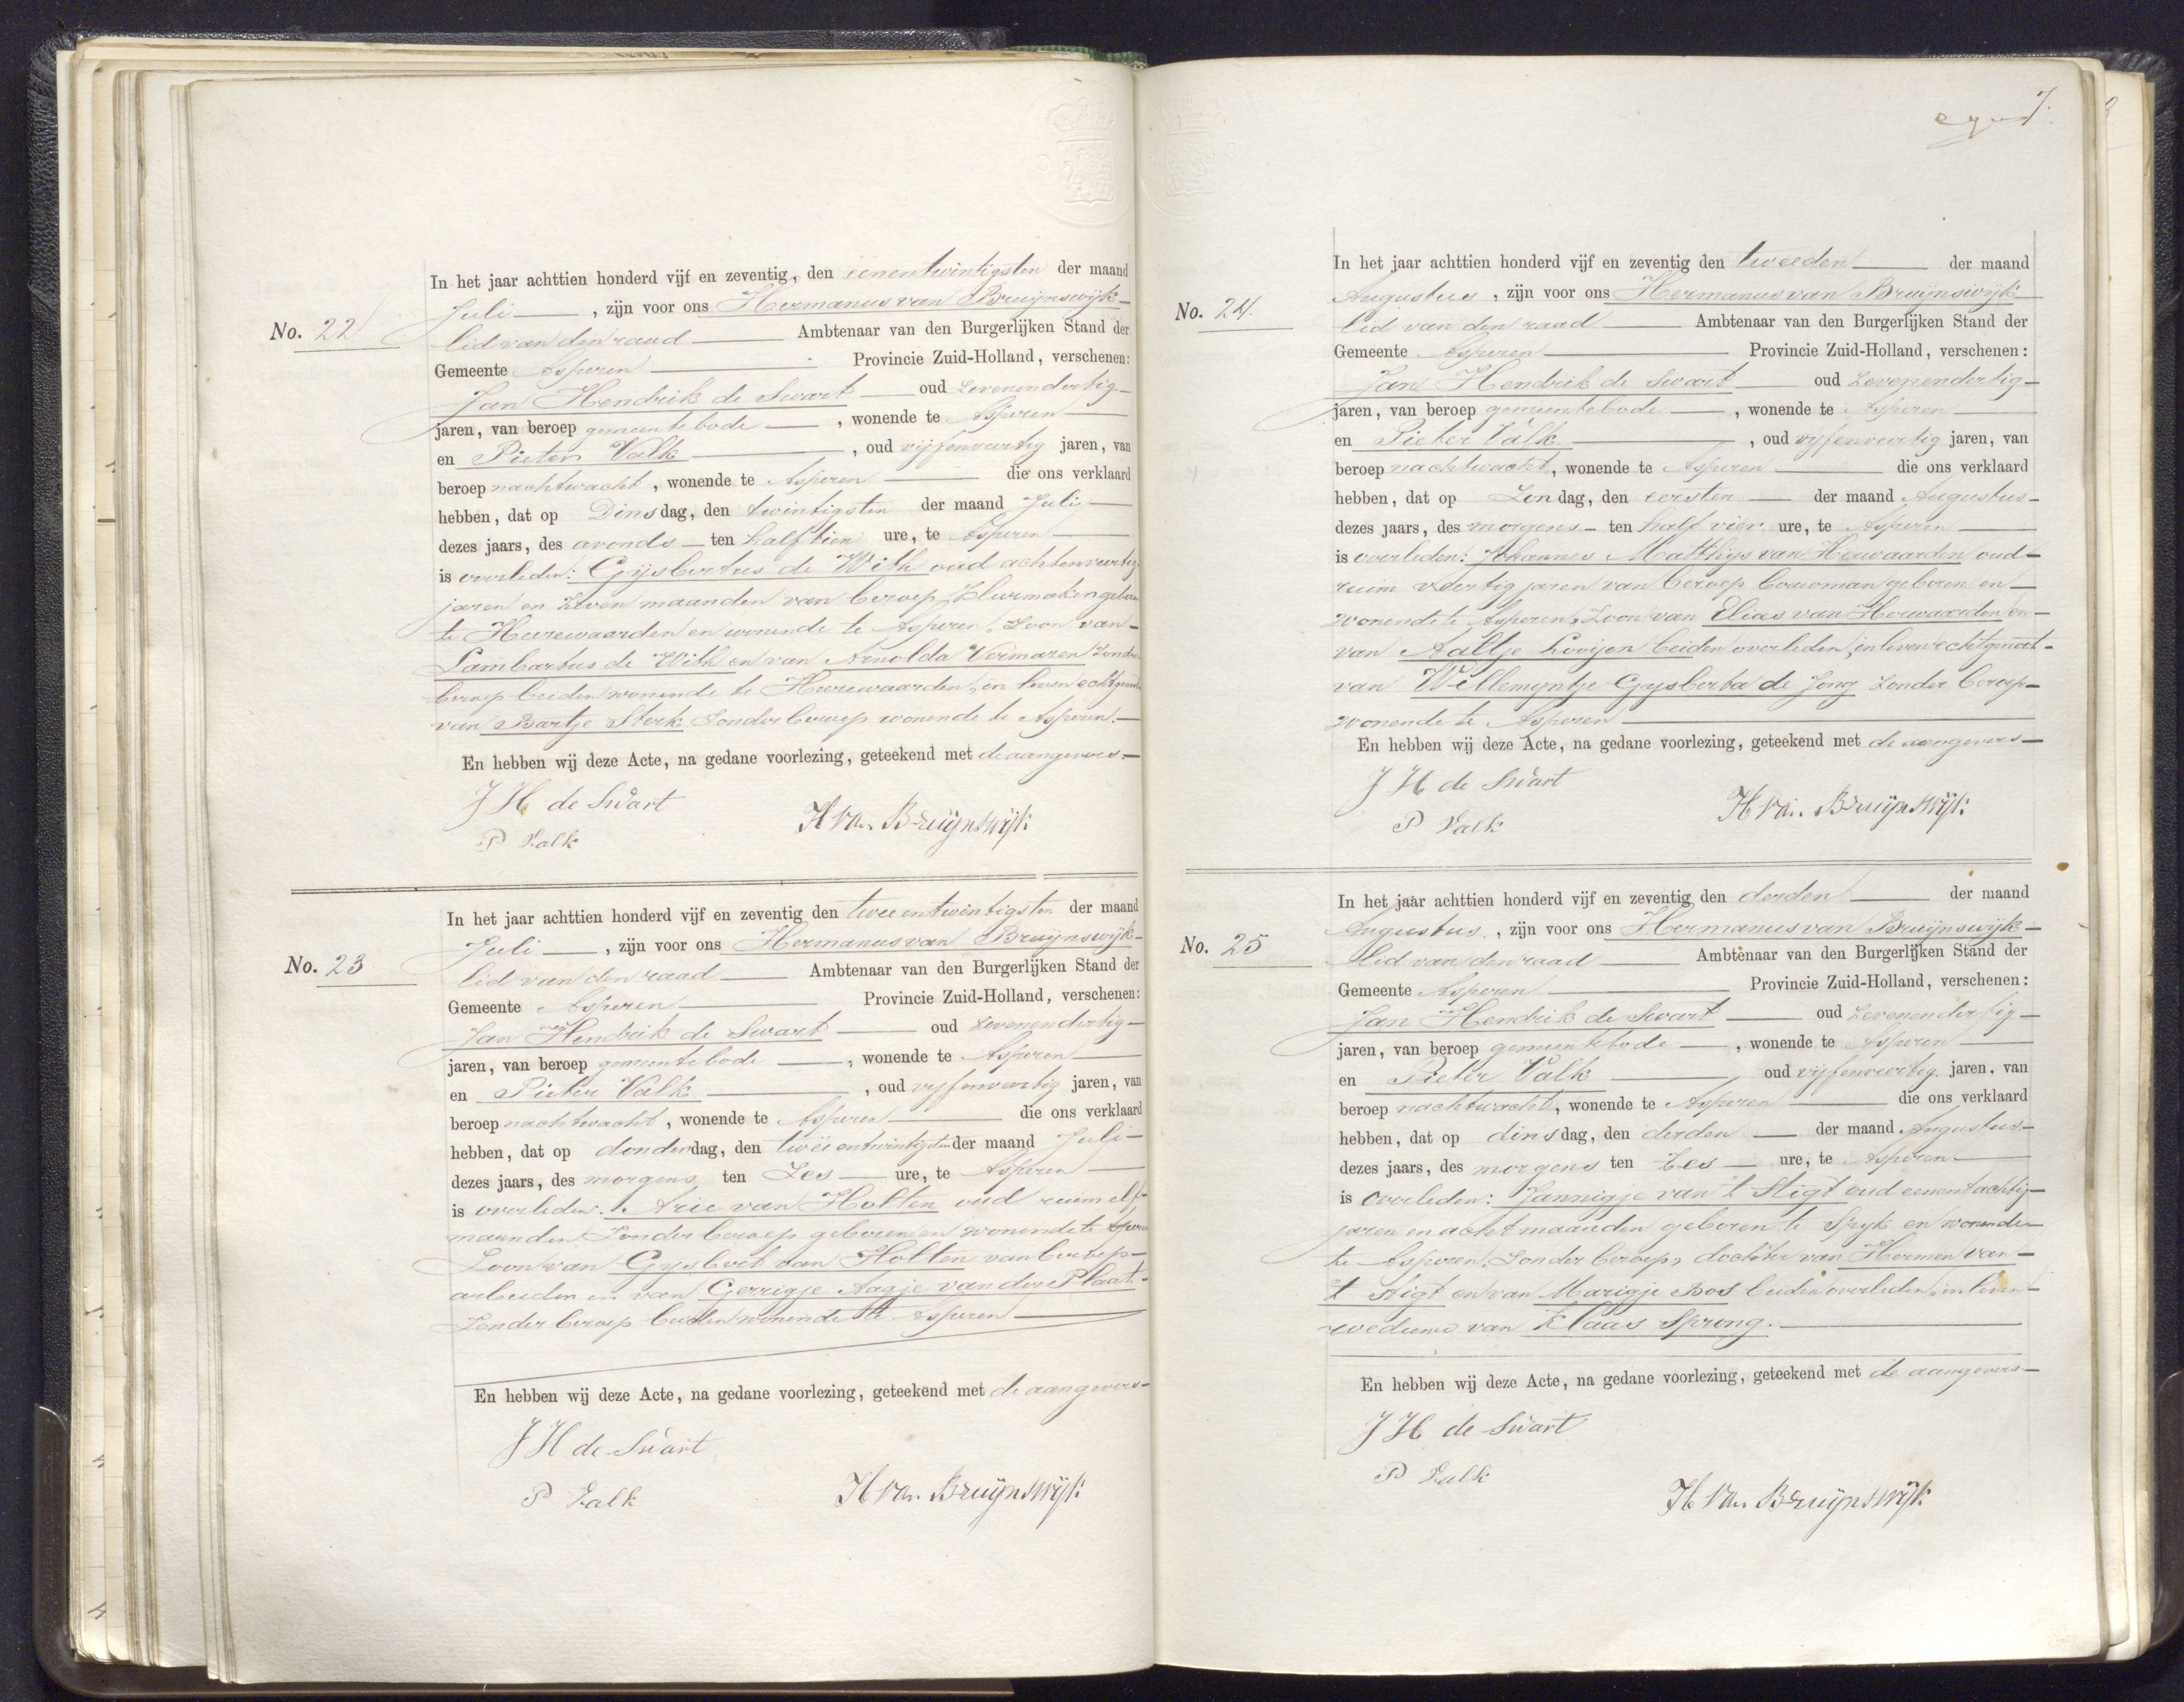 No. 22
In het jaar achttien honderd vijf en zeventig, den eenentwintigsten der maand
Juli, zijn voor ons Hermanus van Bruijnswijk
lid van den raad Ambtenaar van den Burgerlijken Stand der
Gemeente Asperen Provincie Zuid-Holland, verschenen:
Jan Hendrik de Swart oud Zevenendertig
jaren, van beroep gemeentebode, wonende te Asperen
en Pieter Valk, oud vijfenveertig jaren, van
beroep nachtwacht, wonende te Asperen die ons verklaard
hebben, dat op Dinsdag, den twintigsten der maand Juli
dezes jaars, des avonds ten half tien ure, te Asperen
is overleden: Gijsbertus de With oud achtenveertig
jaren en Zeven maanden van beroep geboren
te Heerewaarden en wonende te Asperen, Zoon van
Lambartus de With en van Arnolda Vermazen Zonder
beroep beiden wonende te Heerewaarden, in leven echtgenoot
van Bartje Sterk Zonder beroep wonende te Asperen.
En hebben wij deze Acte, na gedane voorlezing, geteekend met de aangevers.
J H de Swart
H van Bruijnswijk
P Valk
No. 23
In het jaar achttien honderd vijf en zeventig den tweeentwintigsten der maand
Juli, zijn voor ons Hermanus van Bruijnswijk
lid van den raad Ambtenaar van den Burgerlijken Stand der
Gemeente Asperen Provincie Zuid-Holland, verschenen:
Jan Hendrik de Swart oud Zevenendertig
jaren, van beroep gemeentebode, wonende te Asperen
en Pieter Valk, oud vijfenveertig jaren, van
beroep nachtwacht, wonende te Asperen die ons verklaard
hebben, dat op donderdag, den tweeentwintigsten der maand Juli
dezes jaars, des morgens ten Zes ure, te Asperen
is overleden: Arie van Holten oud ruim elf
maanden Zonder beroep geboren en wonende te Asperen
Zoon van Gysbert van Holten van beroep
arbeider en van Gerrigje Aagje van der Plaat
Zonder beroep beiden wonende te Asperen
En hebben wij deze Acte, na gedane voorlezing, geteekend met de aangevers
J H de Swart
P Valk
H van Bruijnswijk
7.
No. 24.
In het jaar achttien honderd vijf en zeventig den tweeden der maand
Augustus, zijn voor ons Hermanus van Bruijnswijk
lid van den raad Ambtenaar van den Burgerlijken Stand der
Gemeente Asperen Provincie Zuid-Holland, verschenen:
Jan Hendrik de Swart oud Zevenendertig
jaren, van beroep gemeentebode, wonende te Asperen
en Pieter Valk, oud vijfenveertig jaren, van
beroep nachtwacht, wonende te Asperen die ons verklaard
hebben, dat op Zondag, den eersten der maand Augustus
dezes jaars, des morgens ten half vier ure, te Asperen
is overleden: Johannes Matthijs van Herwaarden oud
ruim veertig jaren van beroep bouwman geboren en
wonende te Asperen, Zoon van Elias van Herwaarden en
van Aaltje Looijen beiden overleden, in leven echtgenoot
van Willemyntje Gysberta de Jong Zonder beroep
wonende te Asperen
En hebben wij deze Acte, na gedane voorlezing, geteekend met de aangevers
J H de Swart
H van Bruijnswijk
P Valk
No. 25
In het jaar achttien honderd vijf en zeventig den derden der maand
Augustus, zijn voor ons Hermanus van Bruijnswijk
lid van den raad Ambtenaar van den Burgerlijken Stand der
Gemeente Asperen Provincie Zuid-Holland, verschenen:
Jan Hendrik de Swart oud Zevenendertig
jaren, van beroep gemeentebode, wonende te Asperen
en Pieter Valk oud vijfenveertig jaren, van
beroep nachtwacht, wonende te Asperen die ons verklaard
hebben, dat op dinsdag, den derden der maand Augustus
dezes jaars, des morgens ten Zes ure, te Asperen
is overleden: Jannigje van 't Stigt oud eenentachtig
jaren en acht maanden geboren te Spyk en wonende
te Asperen, Zonder beroep, dochter van Hermen van
't Stigt en van Marigje Bos beiden overleden, in leven
weduwe van Klaas Sprong.
En hebben wij deze Acte, na gedane voorlezing, geteekend met de aangevers
J H de Swart
P Valk
H van Bruijnswijk